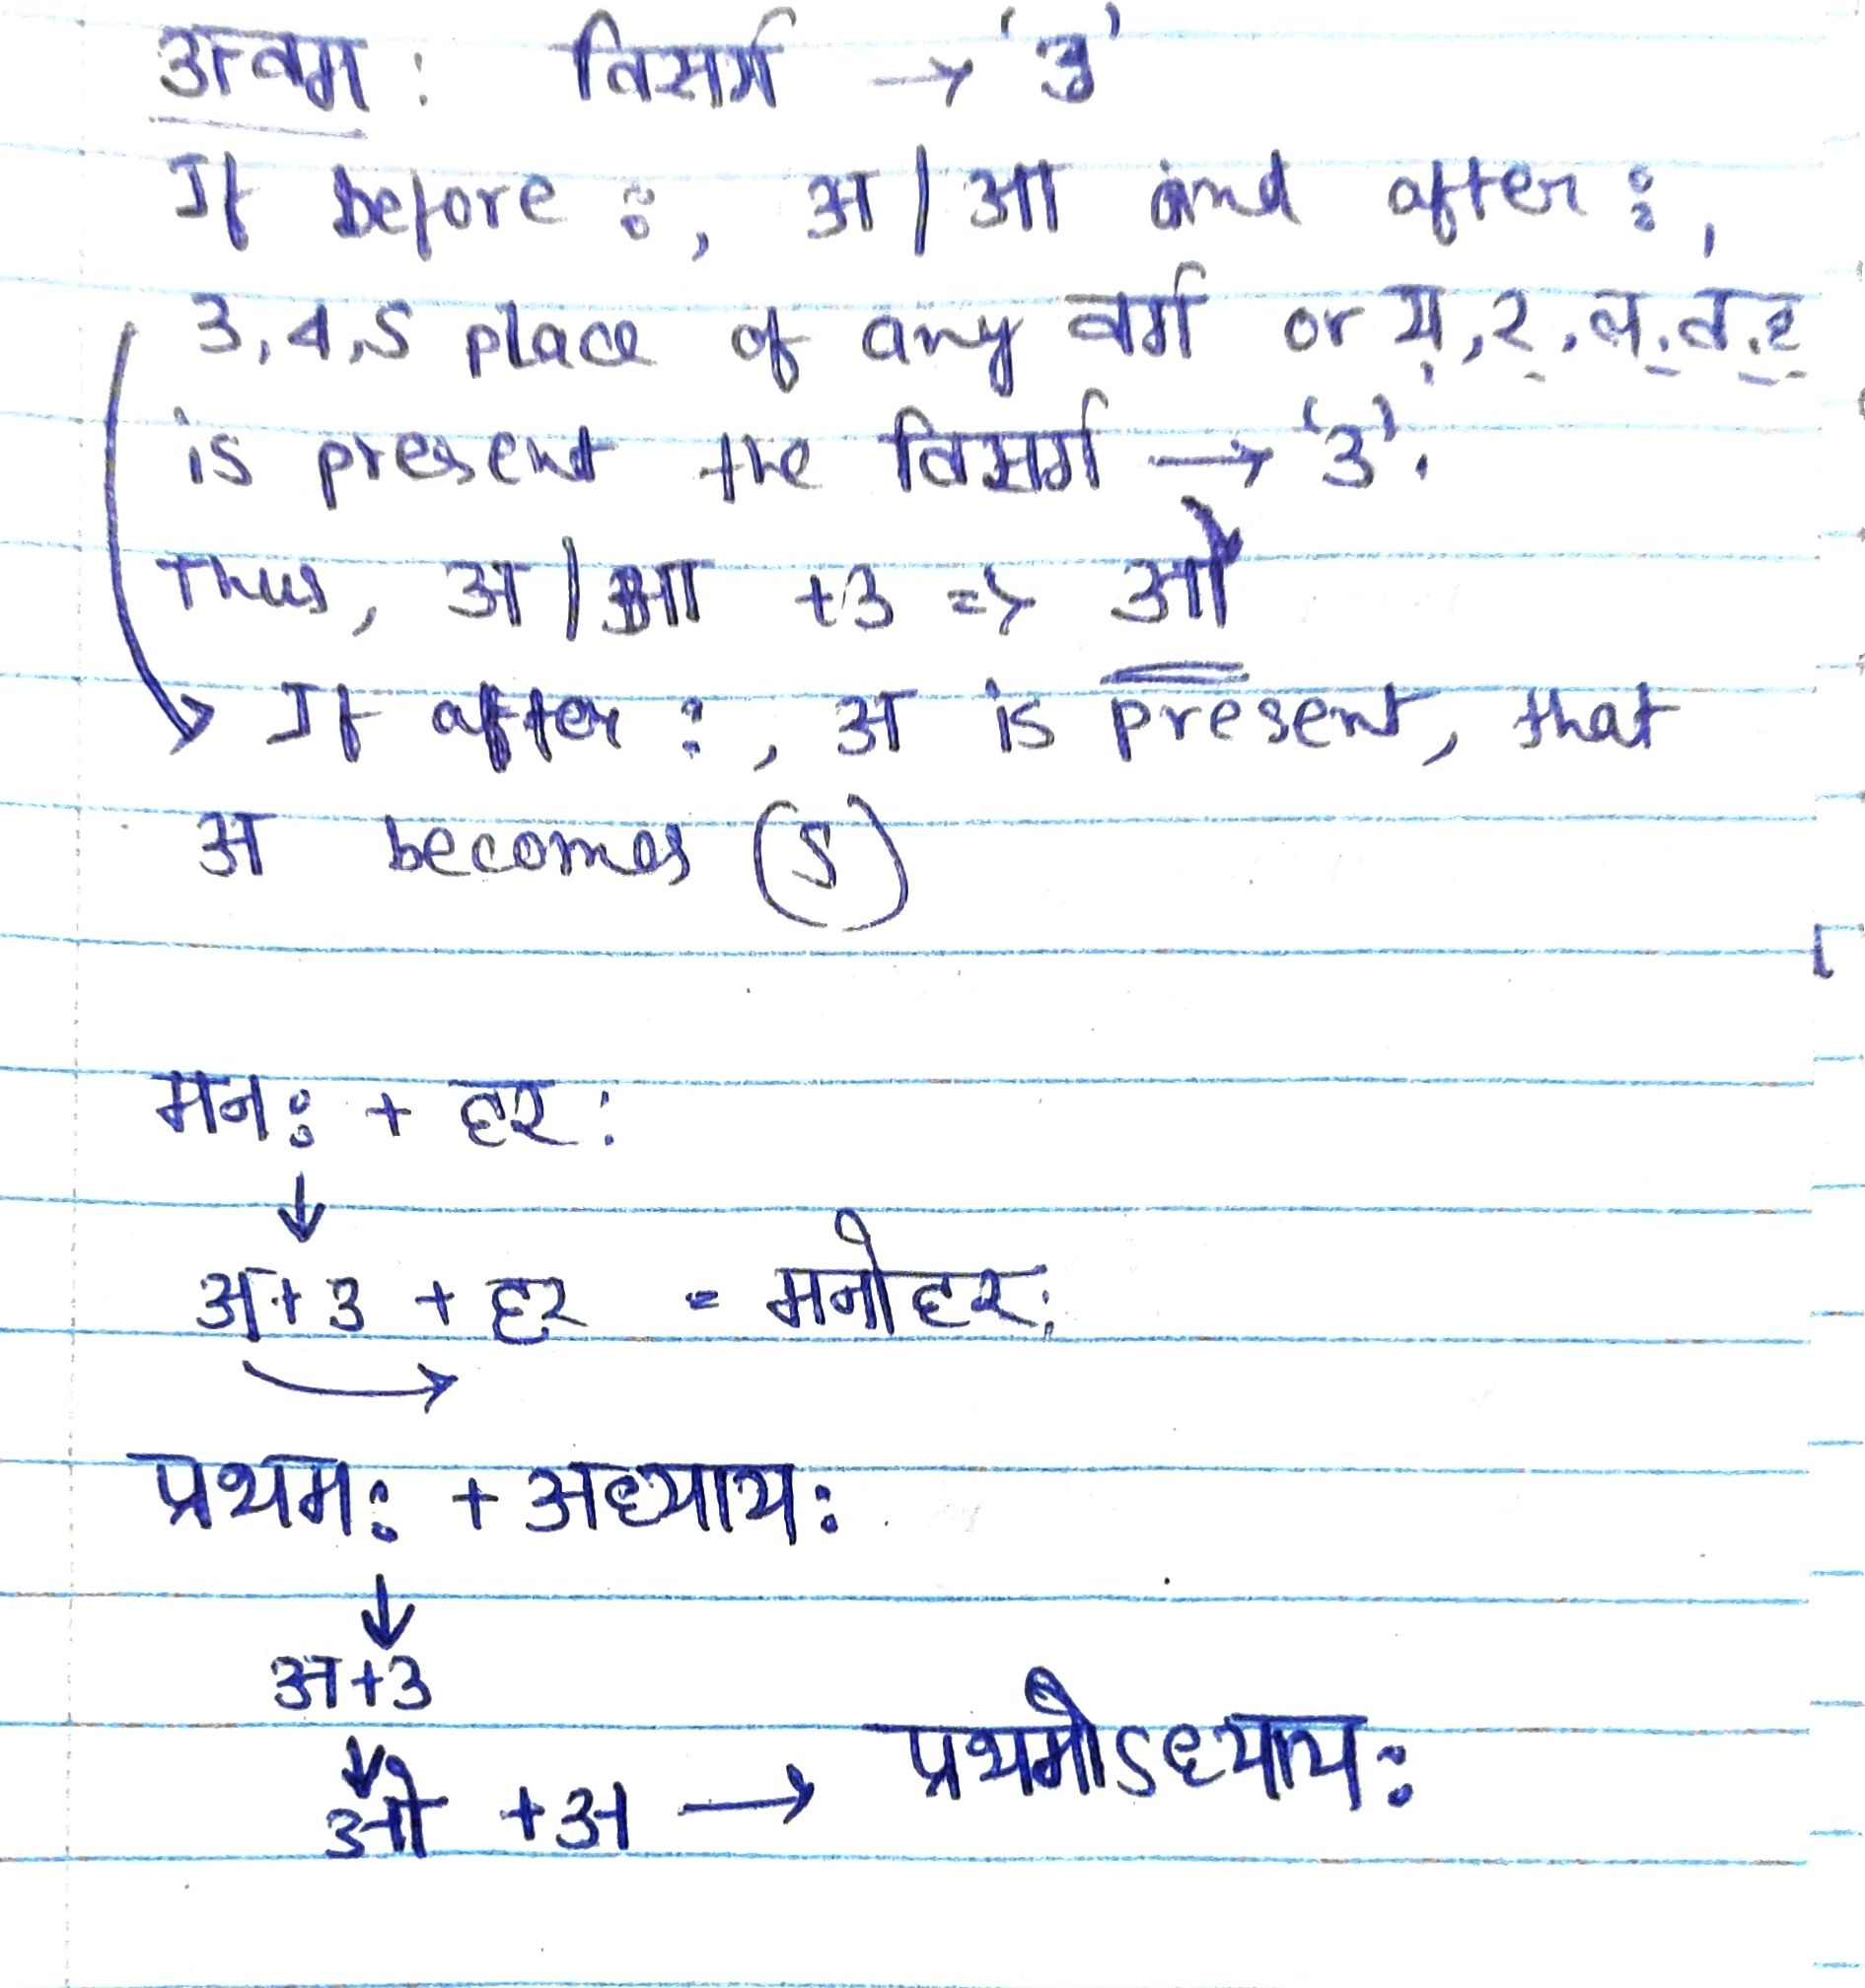 उत्वम : विसर्ग → 'उ'
If before :, अ | आ and after :,
3, 4, 5 place of any वर्ग or य्, र्, ल्, व्, ह्
is present the विसर्ग → 'उ'.
Thus, अ | आ + उ => ओ
If after :, अ is present, that
अ becomes (ऽ)
मनः + हरः
↓
अ + उ + हर = मनोहरः
प्रथमः + अध्यायः
↓
अ + उ
↓
ओ + अ → प्रथमोऽध्यायः